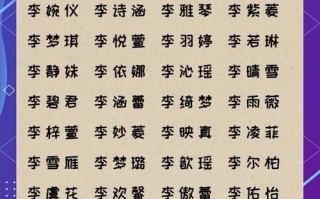 李婉仪 李诗涵 李雅琴 李紫菱
李梦琪 李悦萱 李羽婷 李若琳
李静姝 李依娜 李沁瑶 李晴雪
李碧君 李涵蕾 李绮梦 李雨薇
李梓萱 李妙菱 李映真 李凌菲
李雪雁 李梦璐 李歆瑶 李尔柏
李虞花 李欢馨 李傲蕾 李佑怡